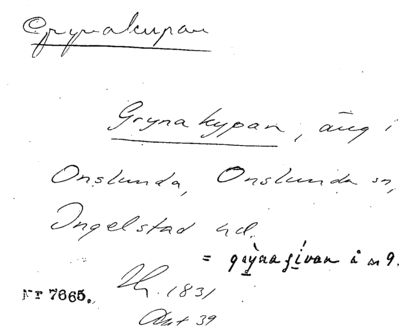 Grynakupan
Grynakypan, äng i
Onslunda, Onslunda sn,
Ingelstad hd.
i nr 9.
Nr 7665.
1831
Akt 39